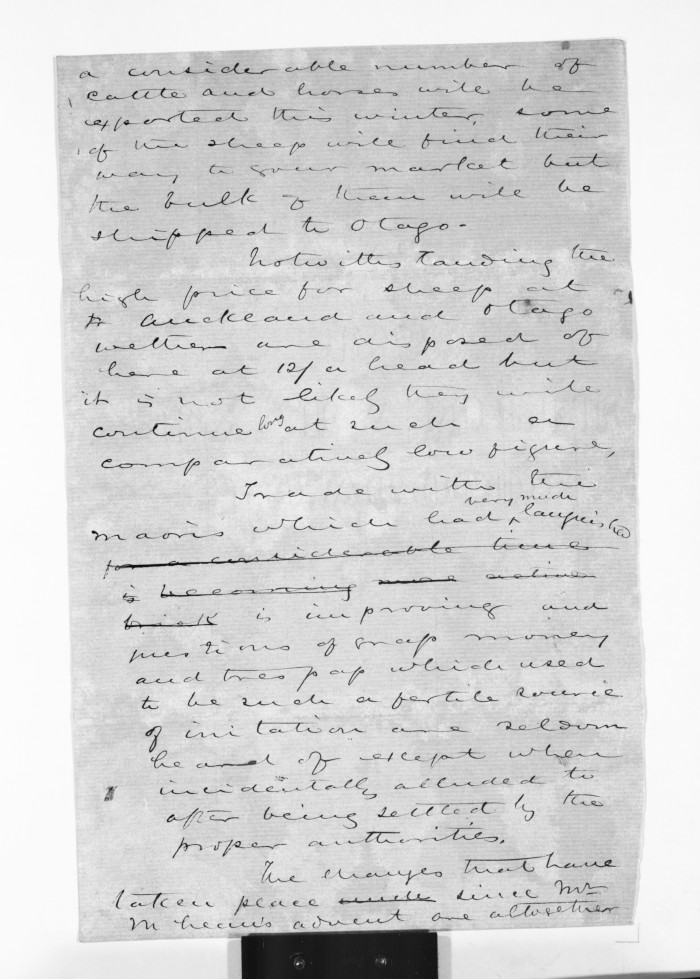 a considerable number of
cattle and horses will be
exported this winter, some
of the sheep will find their
way to your market but
the bulk of them will be
shipped to Otago.
Notwithstanding the
high price for sheep at
Auckland and Otago
wethers are disposed of
here at 12/ a head but
it is not likely they will
continue long at such a
comparatively low figure,
Trade with the
very much
Maoris which had languished
for a considerable time
is becoming more active
brisk is improving and
questions of grass money
and trespass which used
to be such a fertile source
of irritation are seldom
heard of except when
incidentally alluded to
after being settled by the
proper authorities.
The changes that have
taken place since Mr
McLean's advent are altogether